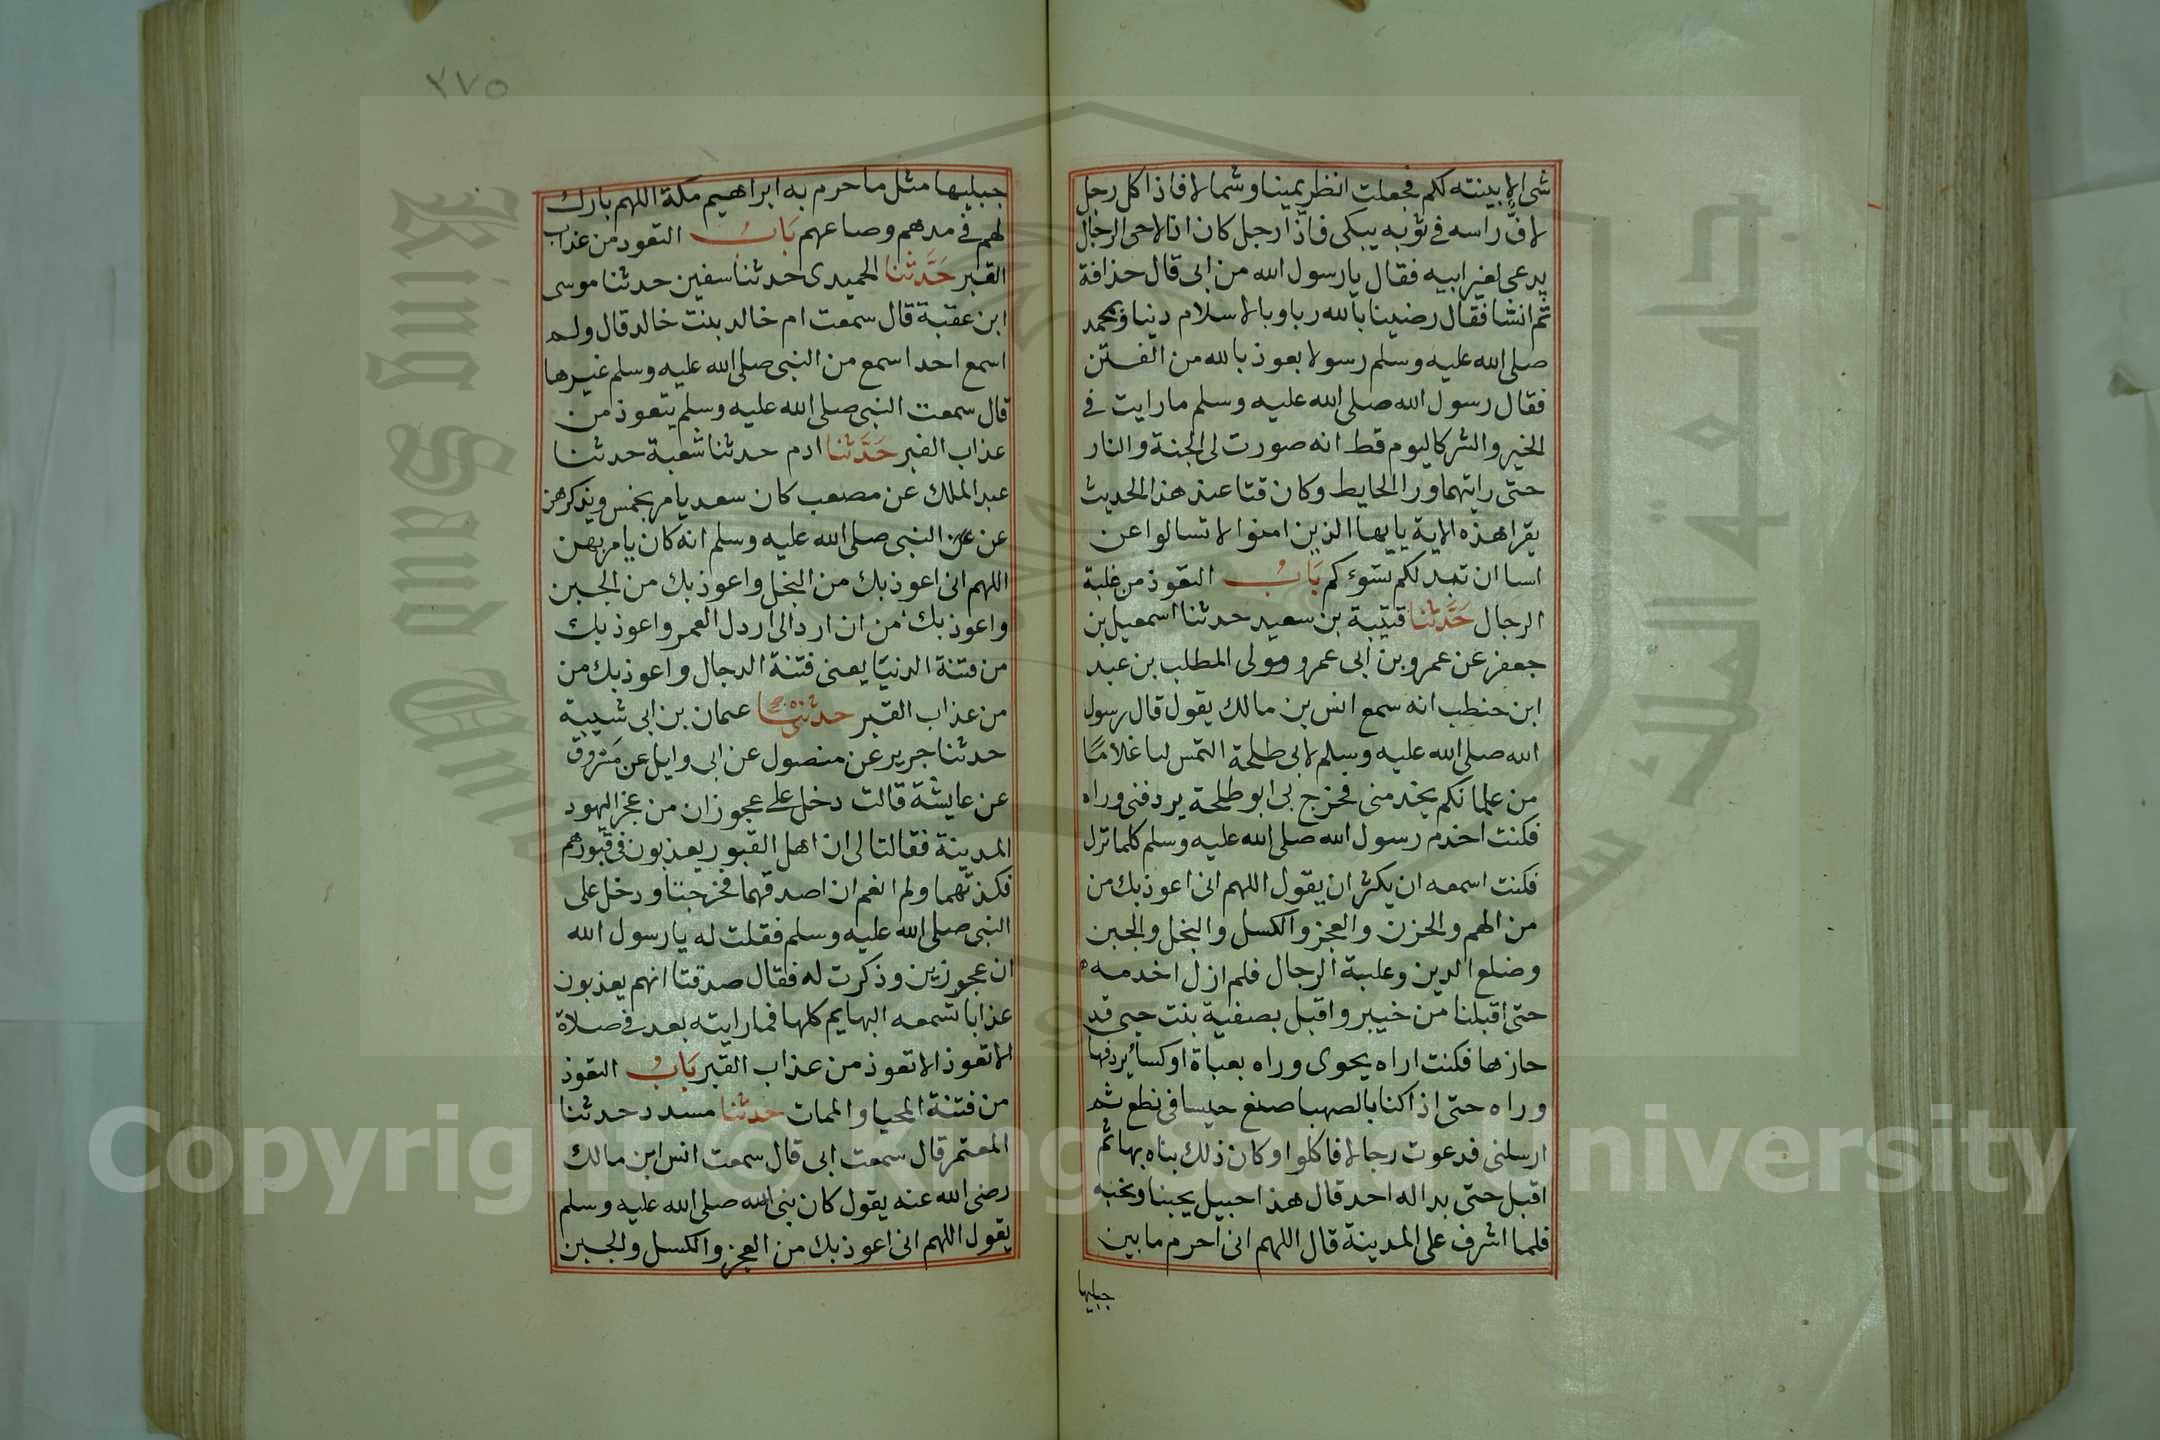 شى الا بينته لكم فجعلت انظر يمينا وشمالا فاذا كل رجل
لاف راسه فى ثوبه يبكى فاذا رجل كان اذا لاحى الرجال
يدعى لغير ابيه فقال يا رسول الله من ابى قال حذافة
ثم انشا فقال رضينا بالله ربا وبالاسلام دينا وبمحمد
صلى الله عليه وسلم رسولا بعوذ بالله من الفتن
فقال رسول الله صلى الله عليه وسلم ما رايت فى
الخير والشر كاليوم قط انه صورت لى الجنة والنار
حتى رايتهما ورا الحايط وكان قتا عند هذا الحديث
يقرا هذه الاية يا يها الذين امنوا لا تسالوا عن
اسا ان تبد لكم تسوءكم باب التعوذ من غلبة
الرجال حدثنا قتيبة بن سعيد حدثنا اسمعيل بن
جعفر عن عمرو بن ابى عمرو مولى المطلب بن عبد
ابن حنطب انه سمع انس بن مالك يقول قال رسول
الله صلى الله عليه وسلم لابى طلحة التمس لنا غلاما
من غلمانكم يخدمنى فخرج بى ابو طلحة يردفنى وراه
فكنت اخدم رسول الله صلى الله عليه وسلم كلما نزل
فكنت اسمعه ان يكثر ان يقول اللهم انى اعوذ بك من
من الهم والحزن والعجز والكسل والبخل والجبن
وضلع الدين وغلبة الرجال فلم ازل اخدمه
حتى اقبلنا من خيبر واقبل بصفية بنت حيى قد
حازها فكنت اراه يحوى وراه بعباة او كسا يردفها
وراه حتى اذا كنا بالصهبا صنع حيسا فى نطع ثم
ارسلنى فدعوت رجالا فاكلوا وكان ذلك بناه بها ثم
اقبل حتى بدا له احد قال هذا جبيل يحبنا ونحبه
فلما اشرف على المدينة قال اللهم انى احرم ما بين
جبليها
٢٧٥
جبليها مثل ما حرم به ابراهيم مكة اللهم بارك
لهم فى مدهم وصاعهم باب التعوذ من عذاب
القبر حدثنا الحميدى حدثنا سفين حدثنا موسى
ابن عقبة قال سمعت ام خالد بنت خالد قال ولم
اسمع احدا سمع من النبى صلى الله عليه وسلم غيرها
قال سمعت النبى صلى الله عليه وسلم يتعوذ من
عذاب القبر حدثنا ادم حدثنا شعبة حدثنا
عبد الملك عن مصعب كان سعد يامر بخمس ويذكرهن
عن عن النبى صلى الله عليه وسلم انه كان يامر بهن
اللهم انى اعوذ بك من البخل واعوذ بك من الجبن
واعوذ بك من ان ارد الى اردل العمر واعوذ بك
من فتنة الدنيا يعنى فتنة الدجال واعوذ بك من
من عذاب القبر حدثنى عثمان بن ابى شيبة
حدثنا جرير عن منصول عن ابى وايل عن مسروق
عن عايشة قالت دخل على عجوزان من عجز اليهود
المدينة فقالتا لى ان اهل القبور يعذبون فى قبورهم
فكذبتهما ولم انعم ان اصدقهما فخرجتا ودخل على
النبى صلى الله عليه وسلم فقلت له يا رسول الله
ان عجوزين وذكرت له فقال صدقتا انهم يعذبون
عذابا تسمعه البهايم كلها فما رايته بعد فى صلاة
الا تعوذ الا تعوذ من عذاب القبر باب التعوذ
من فتنة المحيا والممات حدثنا مسدد حدثنا
المعتمر قال سمعت ابى قال سمعت انس ابن مالك
رضى الله عنه يقول كان نبى الله صلى الله عليه وسلم
يقول اللهم انى اعوذ بك من العجز والكسل والجبن
King Saud University
جامعة الملك سعود
1957
Copyright © King Saud University